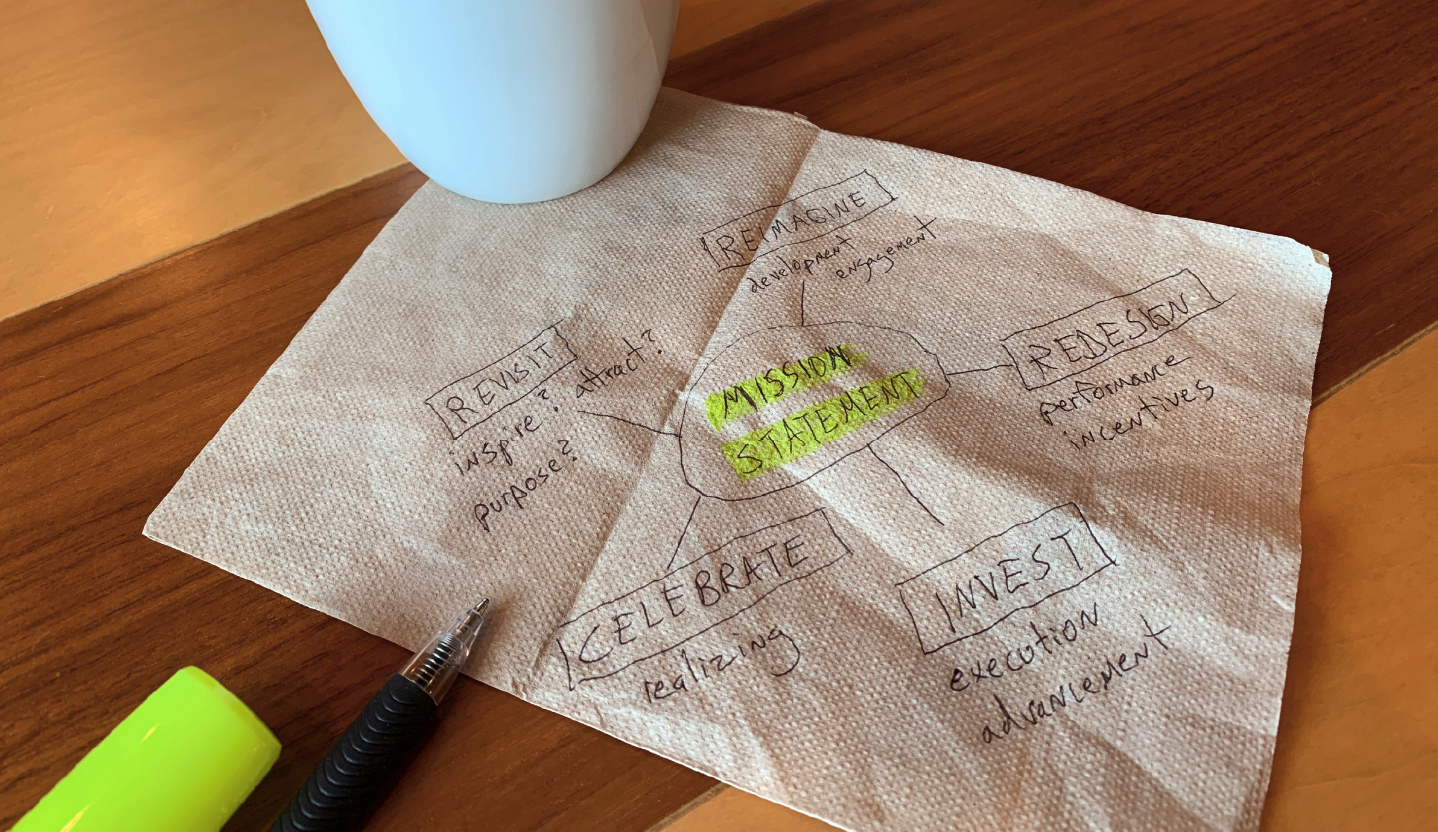 REIMAGINE
development
engagement
REVISIT
inspire? attract?
purpose?
MISSION
STATEMENT
REDESIGN
performance
incentives
CELEBRATE
realizing
INVEST
execution
advancement